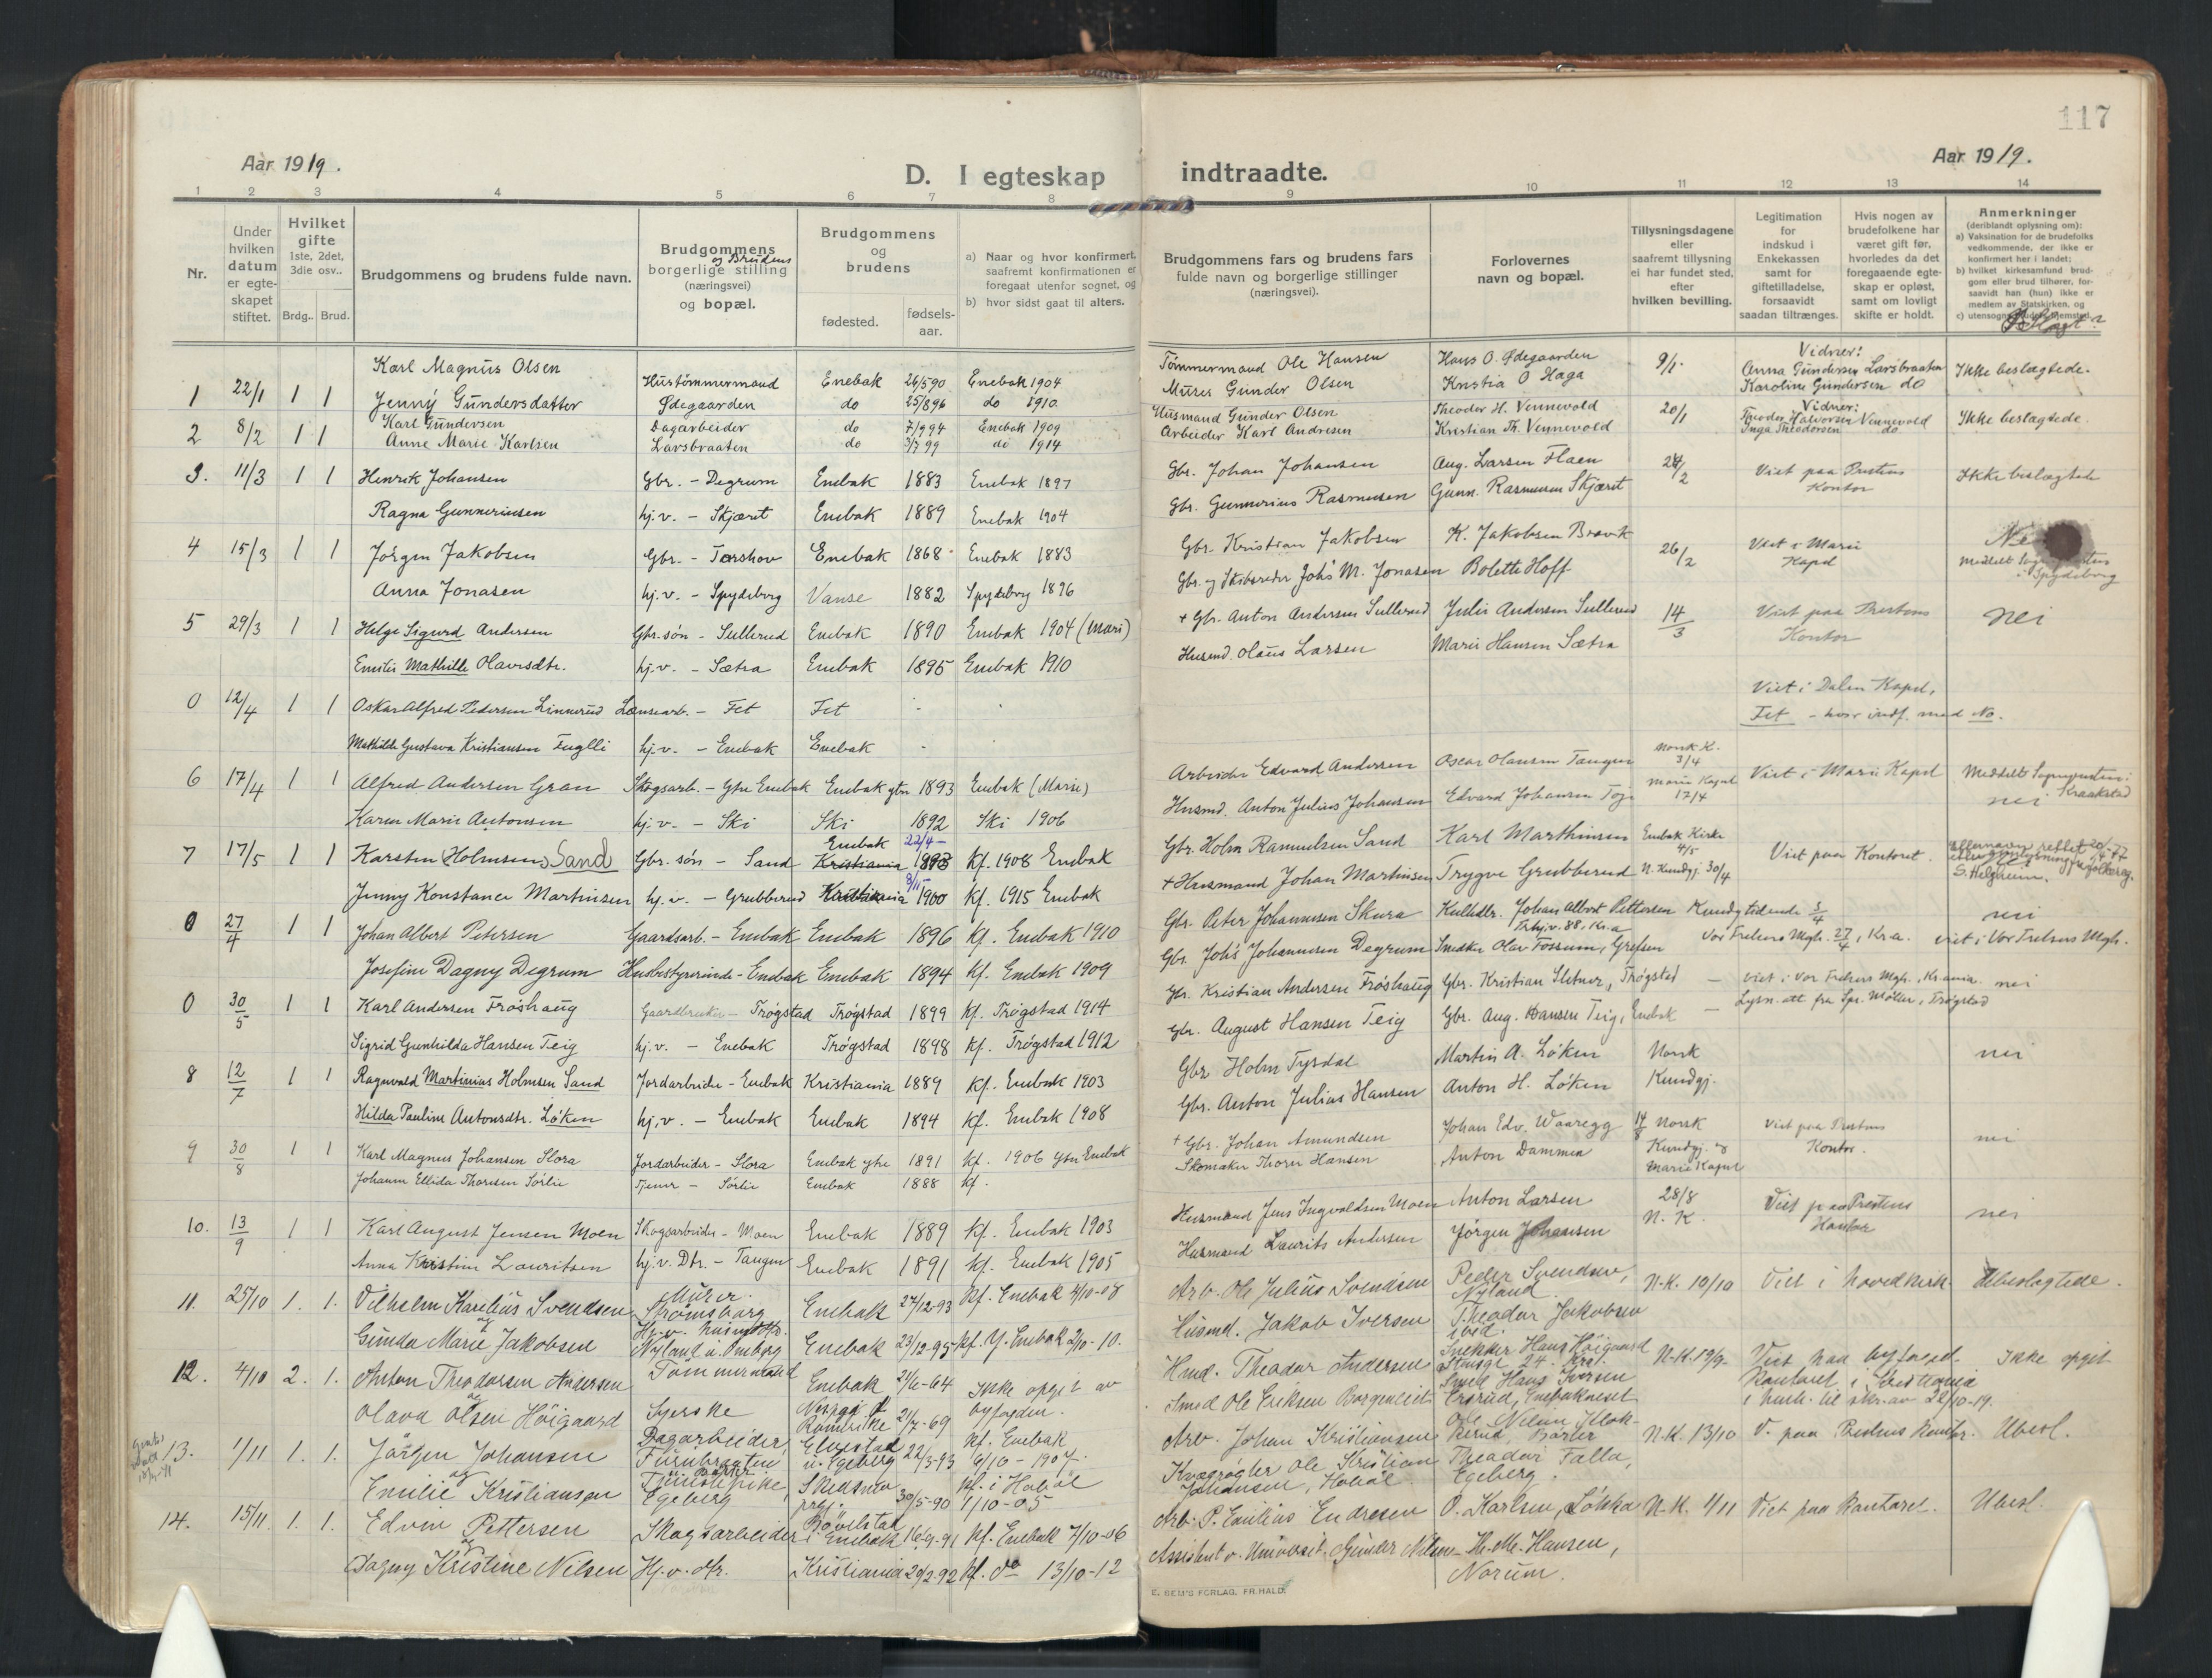 117
Aar 1919.
D. I egteskap indtraadte.
Aar 1919.
1 2 3 4 5 6 7 8 9 10 11 12 13 14
Nr.
Under hvilken datum er egteskapet stiftet.
Hvilket gifte 1ste, 2det, 3die osv..
Brdg.. Brud.
Brudgommens og brudens fulde navn.
Brudgommens og Brudens borgerlige stilling (næringsvei) og bopæl.
Brudgommens og brudens
fødested.
fødsels-aar.
a) Naar og hvor konfirmert, saafremt konfirmationen er foregaat utenfor sognet, og
b) hvor sidst gaat til alters.
Brudgommens fars og brudens fars fulde navn og borgerlige stillinger (næringsvei).
Forlovernes navn og bopæl.
Tillysningsdagene eller saafremt tillysning ei har fundet sted, efter hvilken bevilling.
Legitimation for indskud i Enkekassen samt for giftetilladelse, forsaavidt saadan tiltrænges.
Hvis nogen av brudefolkene har været gift før, hvorledes da det foregaaende egteskap er opløst, samt om lovligt skifte er holdt.
Anmerkninger (deriblandt oplysning om):
a) Vaksination for de brudefolks vedkommende, der ikke er konfirmert her i landet;
b) hvilket kirkesamfund brudgom eller brud tilhører, forsaavidt han (hun) ikke er medlem av Statskirken, og
1 22/1 1 1 Karl Magnus Olsen Hustömmermand Enebak 26/5 90 Enebak 1904 Tømmermand Ole Hansen Hans O. Ødegaarden 9/1. Vidner: Anna Gundersen Larsbraaten Ikke beslægtede.
Jenny Gundersdatter Ødegaarden do 25/8 96 do 1910 Murer Gunder Olsen Kristia O Haga Karoline Gundersen do
2 8/2 1 1 Karl Gundersen Dagarbeider do 7/9 94 Enebak 1909 Husmand Gunder Olsen Theodor H. Vennevold 20/1 Vidner: Theodor Halvorsen Vennevold Ikke beslægtede.
Anne Marie Karlsen Larsbraaten do 3/7 99 do 1914 Arbeider Karl Andresen Kristian Th. Vennevold Inga Theodorsen do
3. 11/3 1 1 Henrik Johansen Gbr. - Degrum Enebak 1883 Enebak 1897 Gbr. Johan Johansen Aug. Larsen Flaen 24/2 Viet paa Prestens Kontor Ikke beslægtede
Ragna Gunneriusen hj.v. - Skjæret Enebak 1889 Enebak 1904 Gbr. Gunnerius Rasmussen Gunn. Rasmussen Skjæret
4 15/3 1 1 Jørgen Jakobsen Gbr. - Torshov Enebak 1868 Enebak 1883 Gbr. Kristian Jakobsen K. Jakobsen Brevik 26/2 Viet i Mari Kapel
Anna Jonasen hj.v. - Spydeberg Vanse 1882 Spydeberg 1896 Gbr. og Skibsreder Johs M. Jonasen Bolette Hoff Spydeberg
5 29/3 1 1 Helge Sigurd Andersen Gbr. søn - Sullerud Enebak 1890 Enebak 1904 (Mari) + Gbr. Anton Andersen Sullerud Julie Andersen Sullerud 14/3 Viet paa Prestens Kontor nei
Emilie Mathilde Olavsdtr. hj.v. - Sætra Enebak 1895 Enebak 1910 Husmd. Olaus Larsen Marie Hansen Sætra
0 12/4 1 1 Oskar Alfred Pedersen Linnerud Lænsearb. - Fet Fet Viet i Dalen Kapel, Fet - hvor indf. med No.
Mathilde Gustava Kristiansen Fuglli hj.v. - Enebak Enebak
6 17/4 1 1 Alfred Andersen Gran Skogsarb. - Ytre Enebak Enebak ytre 1893 Enebak (Mari) Arbeider Edvard Andersen Oscar Olausen Tangen Norsk K. 3/4 Viet i Mari Kapel Meddelt Sogneprsten: Kraakstad
Karen Marie Antonsen hj.v. - Ski Ski 1892 Ski 1906 Husmd. Anton Julius Johansen Edvard Johansen Marie Kapel 17/4 nei
7 17/5 1 1 Karsten (Holmsen) Sand Gbr. søn - Sand Kristiania Enebak 22/4- 1893 Kf. 1908 Enebak Gbr. Holm Ramuelsen Sand Karl Marthinsen Enebak Kirke 4/5 Viet paa Kontoret. S. Helgheim.
Jenny Konstance Martinsen hj.v. - Grubberud Kristiania 8/11 1900 Kf. 1915 Enebak + Husmand Johan Martinsen Trygve Grubberud N. Kundgj. 30/4
0 27/4 1 1 Johan Albert Petersen Gaardsarb. - Enebak Enebak 1896 Kf. Enebak 1910 Gbr. Peter Johannesen Skura Kulhdlr. Johan Albert Pettersen Kundg tidende 3/4 nei
Josefine Dagny Degrum Husbestyrerinde - Enebak Enebak 1894 Kf. Enebak 1909 Gbr. Johs Johannesen Degrum Snedker Olav Fossum, Grefsen Vor Frelsers Mgh. 27/4, Kr.a. viet i Vor Frelsers Mgh.
0 30/5 1 1 Karl Andersen Frøshaug Gaardbruker - Trøgstad Trøgstad 1899 Kf. Trøgstad 1914 Gbr. Kristian Andersen Frøshaug Gbr. Kristian Sletner, Trøgstad - viet i Vor Frelsers Mgh. Kr.ania. nei
Sigrid Gunhilda Hansen Teig hj.v. - Enebak Trøgstad 1898 Kf. Trøgstad 1912 Gbr. August Hansen Teig Gbr. Aug. Hansen Teig, Enebak - Lysn. att. fra Spr. Møller, Trøgstad
8 12/7 1 1 Ragnvald Martinius Holmsen Sand Jordarbeider - Enebak Kristiania 1889 Kf. Enebak 1903 Gbr. Holm Tysdal Martin A. Løken Norsk Kundgj. nei
Hilda Pauline Antonsdtr. Løken hj.v. - Enebak Enebak 1894 Kf. Enebak 1908 Gbr. Anton Julius Hansen Anton H. Løken
9 30/8 1 1 Karl Magnus Johansen Slora Jordarbeider - Slora Enebak ytre 1891 Kf. 1906 ytre Enebak + Gbr. Johan Amundsen Johan Edv. Waaregg 14/8 Norsk Kundgj. og Marie Kapel Viet paa Prestens Kontor. nei
Johanne Ellida Thoresen Sørlie Tjener - Sørlie Enebak 1888 Kf. Skomaker Thorer Hansen Anton Dammen
10. 13/9 1 1 Karl August Jensen Moen Skogsarbeider - Moen Enebak 1889 Kf. Enebak 1903 Husmand Jens Ingvaldsen Moen Anton Larsen 28/8 N. K. Viet paa Prestens Kontor nei
Anna Kristine Lauritsen hj.v. Dtr. - Tangen Enebak 1891 Kf. Enebak 1905 Husmand Laurits Andersen Jørgen Johansen
11. 25/10 1. 1. Vilhelm Karelius Svendsen Murer. Strömsborg Enebak 27/12-93 Kf. Enebak 4/10-08 Arb. Ole Julius Svendsen Peder Svendsen, Nyland N.K. 10/10 Viet i hovedkirk. Ubeslagtede.
og Gunda Marie Jakobsen Hj.v. husmdtr. Nyland u. Enebak 23/12-95 Kf. Y. Enebak 2/10-10. Husmd. Jakob Iversen Theodor Jakobsen ibid.
12. 4/10 2. 1. Anton Theodorsen Andersen Tömmermand Enebak 2/6-64 Ikke opgit av byfogden. Hmd. Theodor Andersen Snekker Hans Höigaard N.K. 19/9. Viet paa byfogd. Kontoret i Kristiania i henh. til skr. av 22/10-19. Ikke opgit
og Olava Olsen Höigaard Syerske Romerike 21/7-69 Smed Ole Eriksen Smed Hans Iversen
13. 1/11 1. 1. Jörgen Johansen Dagarbeider, 22/3-93 Kf. Enebak 6/10-1907. Arb. Johan Kristiansen N.K. 13/10 V. paa Prestens kontor. Ubesl.
og Emilie Kristiansen Egeberg Skedsmo 30/5-90 Kf. i Hobøl 1/10-05 Ole Kristian Johansen, Hobøl Theodor Falla, Egeberg.
14. 15/11. 1. 1. Edvin Pettersen Skogsarbeider i Enebak 16/9-91 Kf. Enebak 7/10-06 Arb. P. Emilius Endresen O. Karlsen, Løkka N.K. 1/11 Viet paa kontoret. Ubesl.
og Dagny Kristine Nilsen Hj.v. dtr. Kristiania 20/2-92 Kf. do 13/10-12 Assistent v. Universit. Gunder Nilsen H. M. Hansen, Norum.
E. SEM'S FORLAG, FR.HALD.